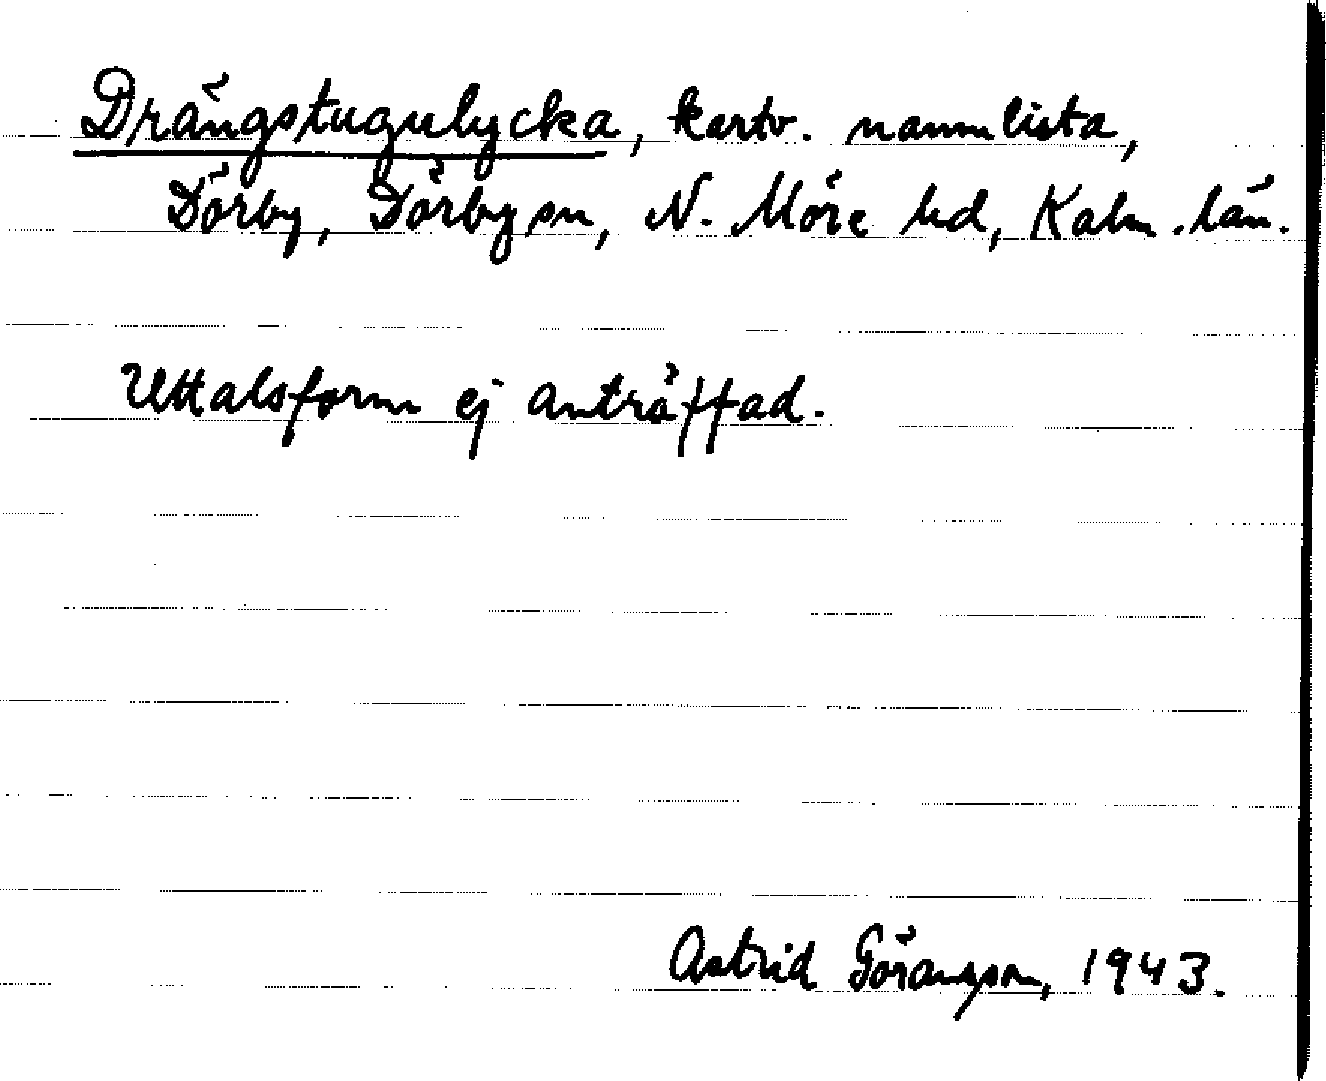 Drängstugulycka, kartv. namnlista,
Dörby, Dörby sn, N. Möre hd, Kalm. län.
Uttalsform ej anträffad.
Astrid Göransson, 1943.